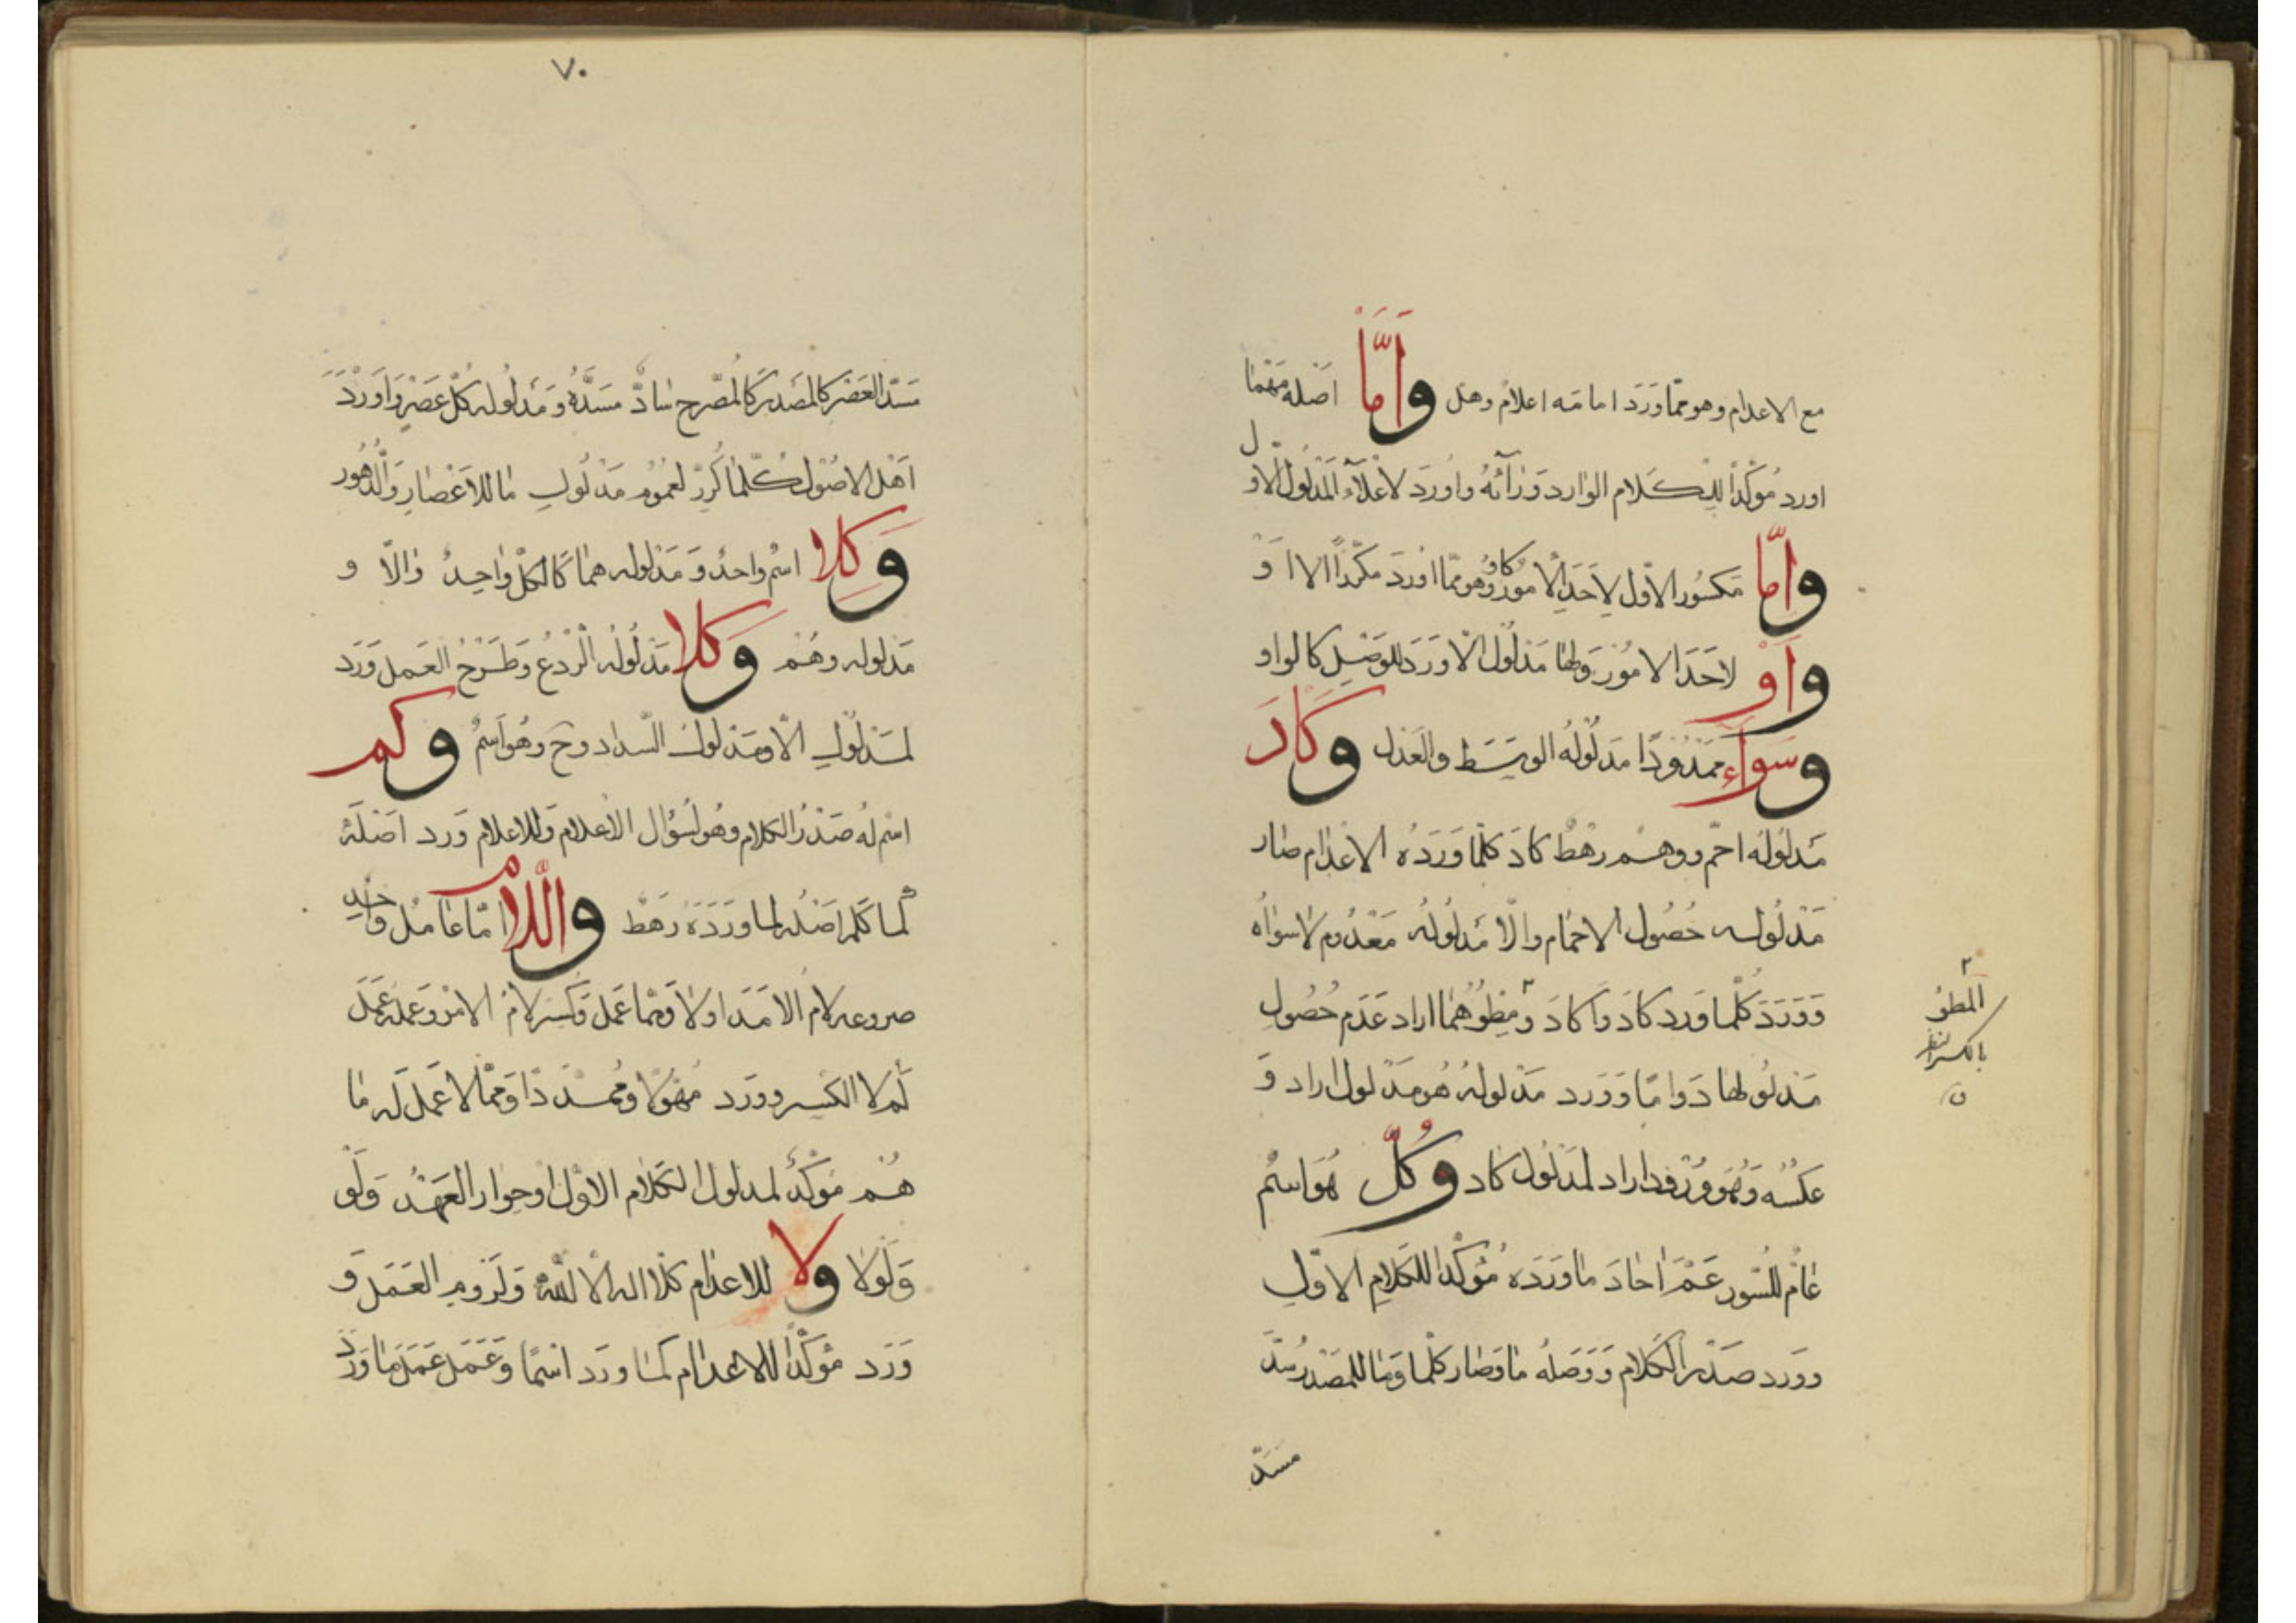 مع الاعدام وهو مما ورد اما مه اعلام وهل وَاَمَّا اصله مهما
اورد مؤكدا للكلام الوارد وراءه واورد لاعلاء المدلول الاول
وَاِمَّا مكسور الاول لاحد الامور وهو مما اورد مكررا الا او
وَاَوْ لاحد الامور ولها مدلول الا ورد للوصل كالواو
وَسَوَاء ممدودا مدلوله الوسط والعدل وَكَادَ
مدلوله احم ووهم رهط كاد كلما ورده الاعدام صار
مدلوله حصول الاحمام والا مدلوله معدوم لا سواه
وورد كلما ورد كاد واكاد ومطوهما اراد عدم حصول
مدلولها دواما وورد مدلوله هو مدلول اراد و
عكسه وهو ورود اراد لمدلول كاد وَكُلّ هو اسم
عام للسور عم احاد ما ورده مؤكدا للكلام الاول
وورد صدر الكلام ووصله ما وصار كلما وما للمصدر سد
مسد
٢
المطو
بالكسر
٧٠
مسد العصر كالمصدر كالمصرح ساد مسده ومدلوله كل عصر واورد
اهل الاصول كلما كرر لعموم مدلول ما للاعصار والدهور
وَكِلا اسم واحد ومدلوله هما كالكل واحد والا و
مدلوله وهم وَكَلا مدلوله الردع وطرح العمل ورد
لمدلول الا ومدلول السداد وح وهو اسم وَكَم
اسم له صدر الكلام وهو لسؤال الاعلام وللاعلام ورد اصله
كما كلم اصله لما ورده رهط وَاللَّام اما عامل واحد
لام الامد اولا ومما عمل وكسر لام الامر وعمله عمل
لم لا الكسر وورد مهولا ومما لا عمل له ما
هم مؤكد لمدلول الكلام الاول او حوار العهد ولو
ولولا وَلا للاعدام كلا اله الا الله ولزوم العمل و
ورد مؤكدا للاعدام كما ورد اسما وعمل عمل ما ورد